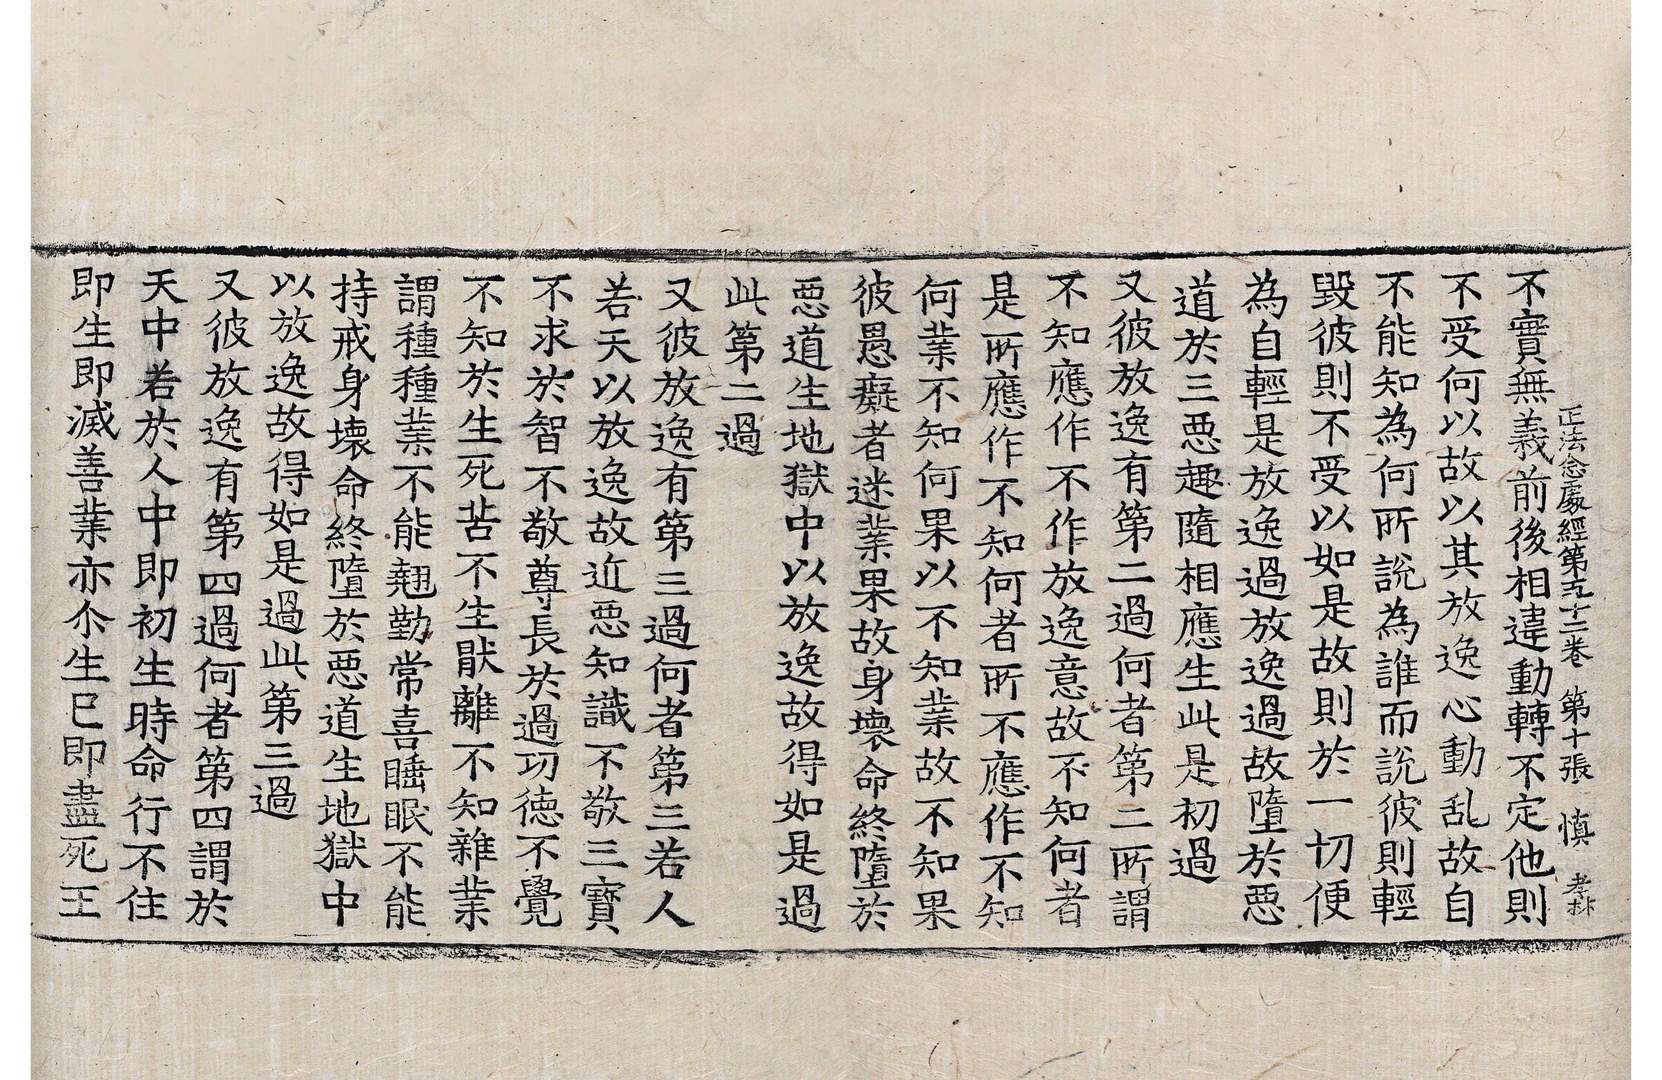 正法念處經第五十二卷 第十張 慎 孝抃
不實無義前後相違動轉不定他則
不受何以故以其放逸心動乱故自
不能知為何所說為誰而說彼則輕
毀彼則不受以如是故則於一切便
為自輕是放逸過放逸過故墮於悪
道於三悪趣隨相應生此是初過
又彼放逸有第二過何者第二所謂
不知應作不作放逸意故不知何者
是所應作不知何者所不應作不知
何業不知何果以不知業故不知果
彼愚癡者迷業果故身壊命終墮於
悪道生地獄中以放逸故得如是過
此第二過
又彼放逸有第三過何者第三若人
若天以放逸故近悪知識不敬三寳
不求於智不敬尊長於過功徳不覺
不知於生死苦不生猒離不知雜業
謂種種業不能翹勤常喜睡眠不能
持戒身壊命終墮於悪道生地獄中
以放逸故得如是過此第三過
又彼放逸有第四過何者第四謂於
天中若於人中即初生時命行不住
即生即滅善業亦尒生已即盡死王